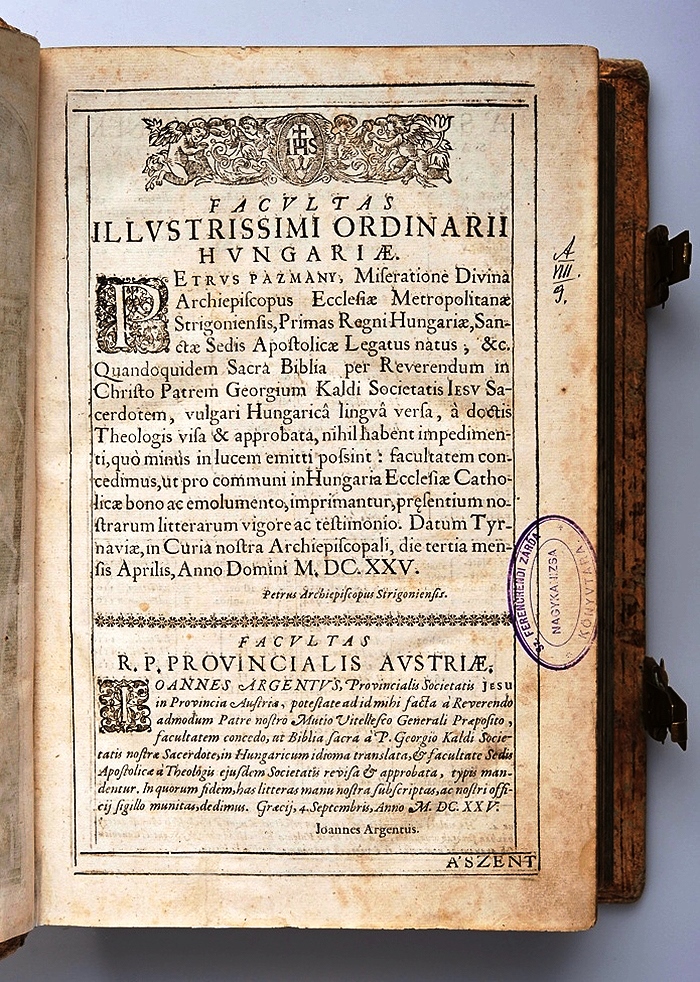 IHS
FACVLTAS
ILLVSTRISSIMI ORDINARII
HVNGARIÆ.
PETRVS PAZMANY, Miſeratione Divinà
Archiepiſcopus Eccleſiæ Metropolitanæ
Strigonienſis, Primas Regni Hungariæ, San-
ctæ Sedis Apoſtolicæ Legatus natus, &c.
Quandoquidem Sacra Biblia per Reverendum in
Chriſto Patrem Georgium Kaldi Societatis IESV Sa-
cerdotem, vulgari Hungaricâ linguâ verſa, à doctis
Theologis viſa & approbata, nihil habent impedimen-
ti, quò minùs in lucem emitti poſsint: facultatem con-
cedimus, ut pro communi in Hungaria Eccleſiæ Catho-
licæ bono ac emolumento, imprimantur, pręſentium no-
ſtrarum litterarum vigore ac teſtimonio. Datum Tyr-
naviæ, in Curia noſtra Archiepiſcopali, die tertia men-
ſis Aprilis, Anno Domini M. DC. XXV.
Petrus Archiepiſcopus Strigonienſis.
FACVLTAS
R. P. PROVINCIALIS AVSTRIÆ.
IOANNES ARGENTVS, Provincialis Societatis Jesu
in Provincia Auſtriæ, poteſtate ad id mihi facta à Reverendo
admodum Patre noſtro Mutio Vitelleſco Generali Præpoſito,
facultatem concedo, ut Biblia ſacra à P. Georgio Kaldi Socie-
tatis noſtræ Sacerdote, in Hungaricum idioma translata, & facultate Sedis
Apoſtolicæ à Theologis ejuſdem Societatis reviſa & approbata, typis man-
dentur. In quorum fidem, has litteras manu noſtra ſubſcriptas, ac noſtri offi-
cij ſigillo munitas, dedimus. Græcij, 4. Septembris, Anno M. DC. XXV.
Joannes Argentus.
A'SZENT
A
VIII.
9.
SZ. FERENCRENDI ZÁRDA
NAGYKANIZSA
KÖNYVTÁRA